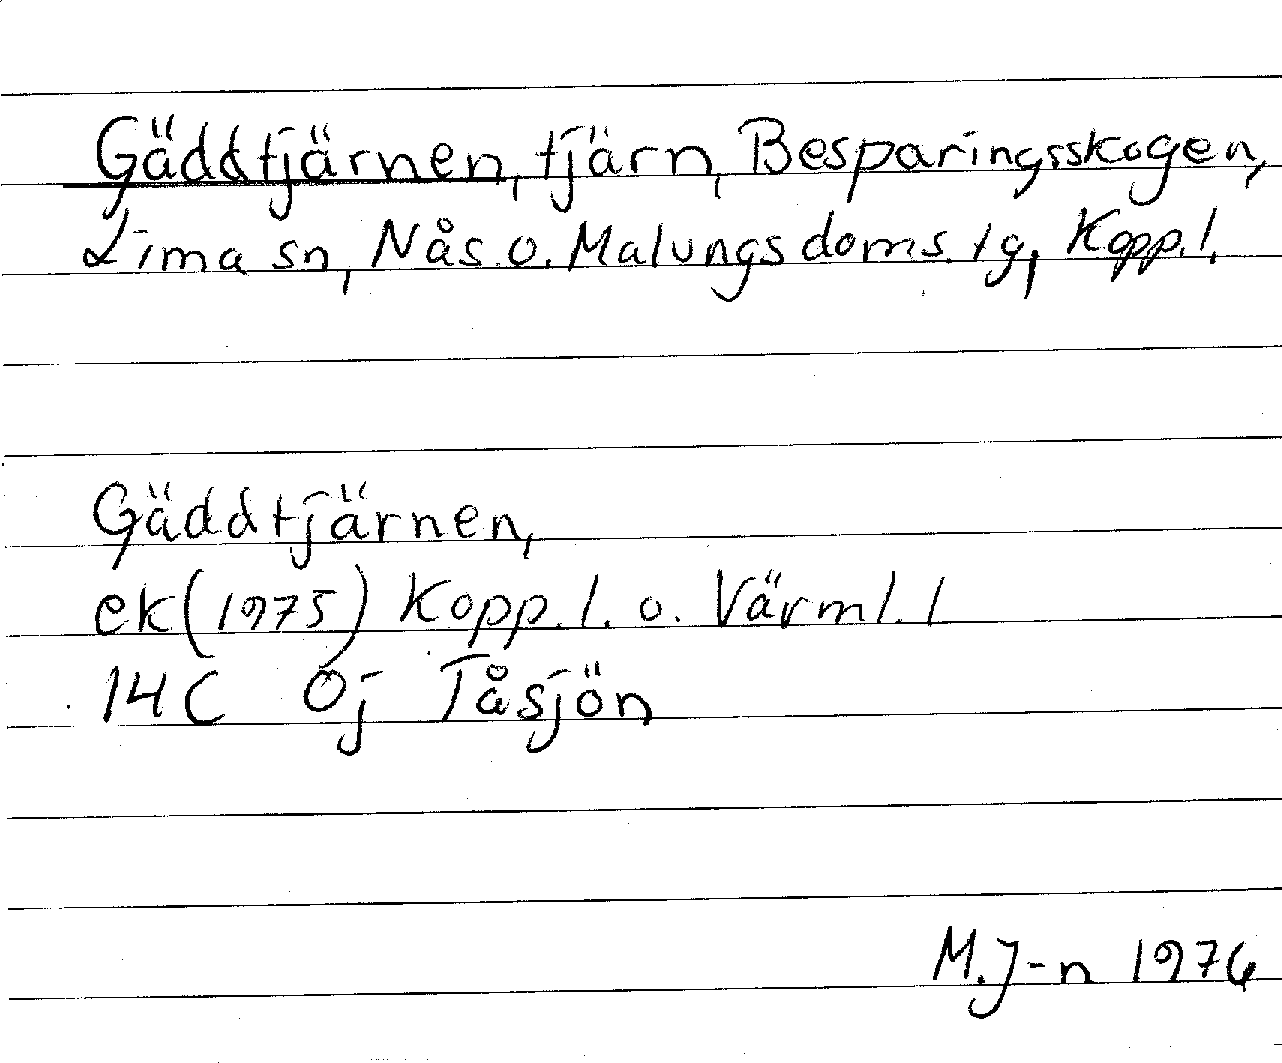 Gäddtjärnen, tjärn, Besparingsskogen,
Lima sn, Nås o. Malungs doms. lg, Kopp. l.
Gäddtjärnen,
ek (1975) Kopp. l. o. Värml. l
14C 0j Tåsjön
M.J-n 1976